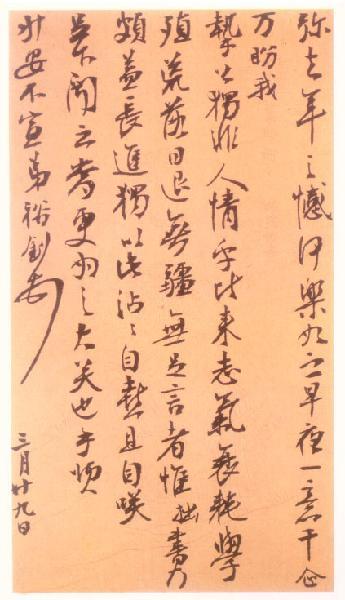 弥去年之憾何樂如之早夜一意千念
万盼我
摯公獨非人情乎比来志氣衰耗學
殖荒落日退無疆無足言者惟拙書乃
頗益長進獨以此沾〻自憙且自咲
足下聞之當更為之大笑也手頌
升安不宣弟裕釗
三月廿九日